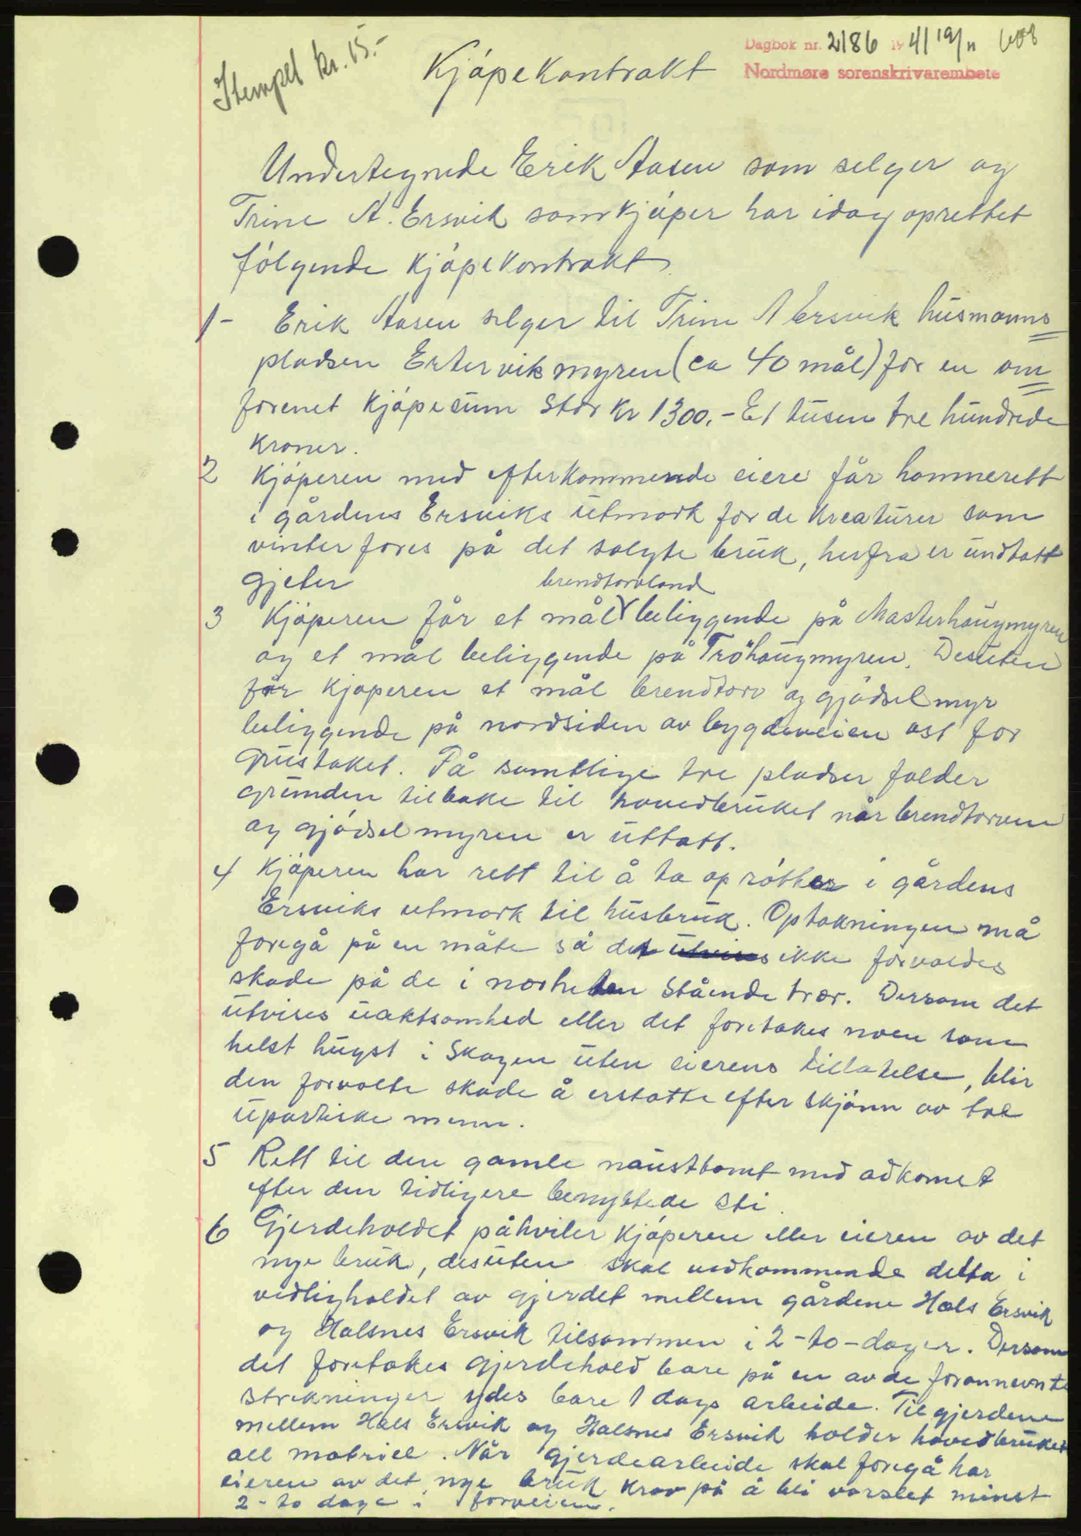 Dagbok nr. 2186 1941 19/11 608
Nordmøre sorenskrivarembete
Stempel kr. 15.-
Kjøpekontrakt
Undertegnede Erik Aasen som selger og
Trine A. Ersvik som kjøper har idag oprettet
følgende kjøpekontrakt.
1- Erik Aasen selger til Trine A Ersvik husmanns
pladsen Estervikmyren (ca 40 mål) for en om
forenet kjøpesum stor kr 1300.- Et tusen tre hundrede
kroner.
2 Kjøperen med efterkommende eiere får havnerett
i gårdens Ersviks utmark for de kreaturer som
vinterfores på det solgte bruk, herfra er undtatt
gjeter
brendtorvland
3 Kjøperen får et mål beliggende på Masterhaugmyren
og et mål beliggende på Trøhaugmyren. Desuten
får kjøperen et mål brendtorv og gjødselmyr
beliggende på nordsiden av bygdeveien øst for
grustaket. På samtlige tre pladser falder
grunden tilbake til hovedbruket når brendtorven
og gjødselmyren er uttatt.
4 Kjøperen har rett til å ta op røtter i gårdens
Ersviks utmark til husbruk. Optakningen må
foregå på en måte så det ikke forvoldes
skade på de i nærheten stående trær. Dersom det
utvises uaktsomhed eller det foretakes noen som
helst hugst i skogen uten eierens tillatelse, blir
den forvolte skade å erstatte efter skjønn av to
upartiske menn.
5 Rett til den gamle nausttomt med adkomst
efter den tidligere benyttede sti.
6 Gjerdeholdet påhviler kjøperen eller eieren av det
nye bruk, desuten skal vedkommende delta i
vedligholdet av gjerdet mellem gårdene Hals Ersvik
og Halsnes Ersvik tilsammen i 2-to-dager. Dersom
det foretakes gjerdehold bare på en av de forannevnte
strekninger ydes bare 1 dags arbeide. Til gjerdene
mellem Hals Ersvik og Halsnes Ersvik holder hovedbruket
all matriel. Når gjerdearbeide skal foregå har
eieren av det nye bruk krav på å bli varslet minst
2-to dage i forveien.